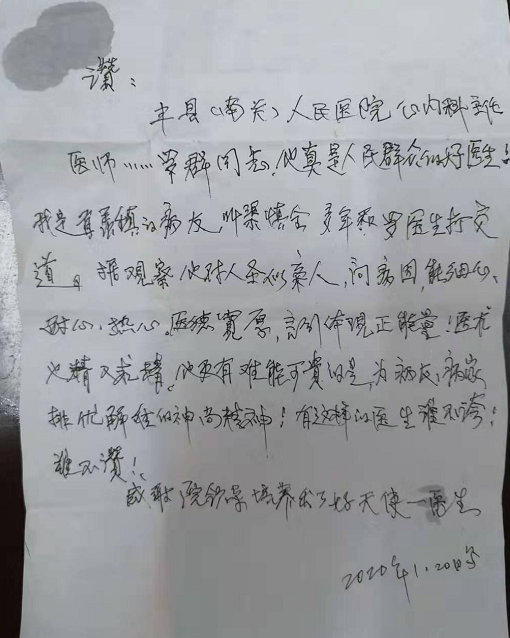 讃：
丰县（南关）人民医院心内科主任
医师……罗群同志，他真是人民群众的好医生！
我是首羡镇的病友，叫渠慎全 多年和罗医生打交
道。据观察他对人圣似亲人，问病因能细心、
耐心、热心。医德寛厚，言行体现正能量！医术
也精又求精。他更有难能可貴的是，为病友、病家
排忧解结的神尚精神！有这样的医生谁不誇！
谁不讃！
感谢院领导培养出了好天使一医生
2020年1.20日